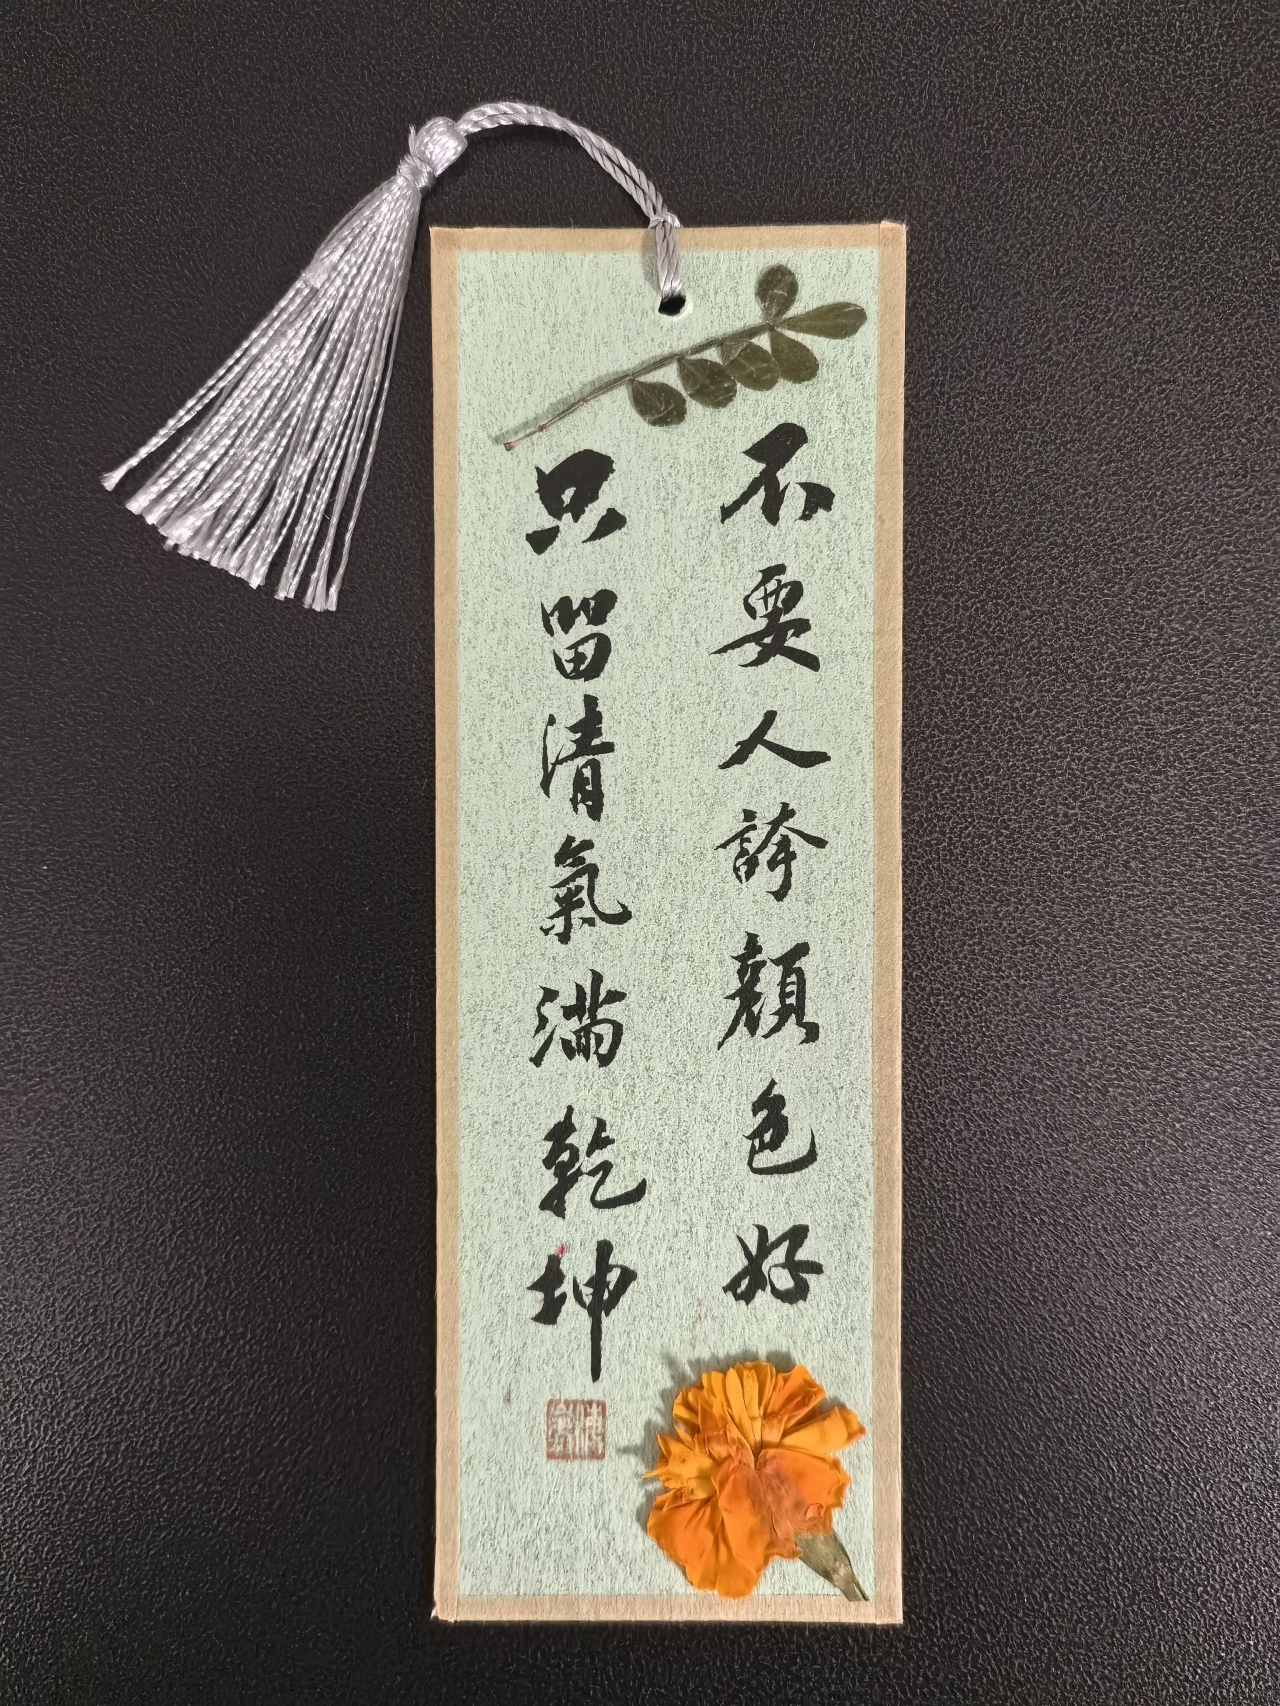 不要人誇顔色好
只留清氣滿乾坤